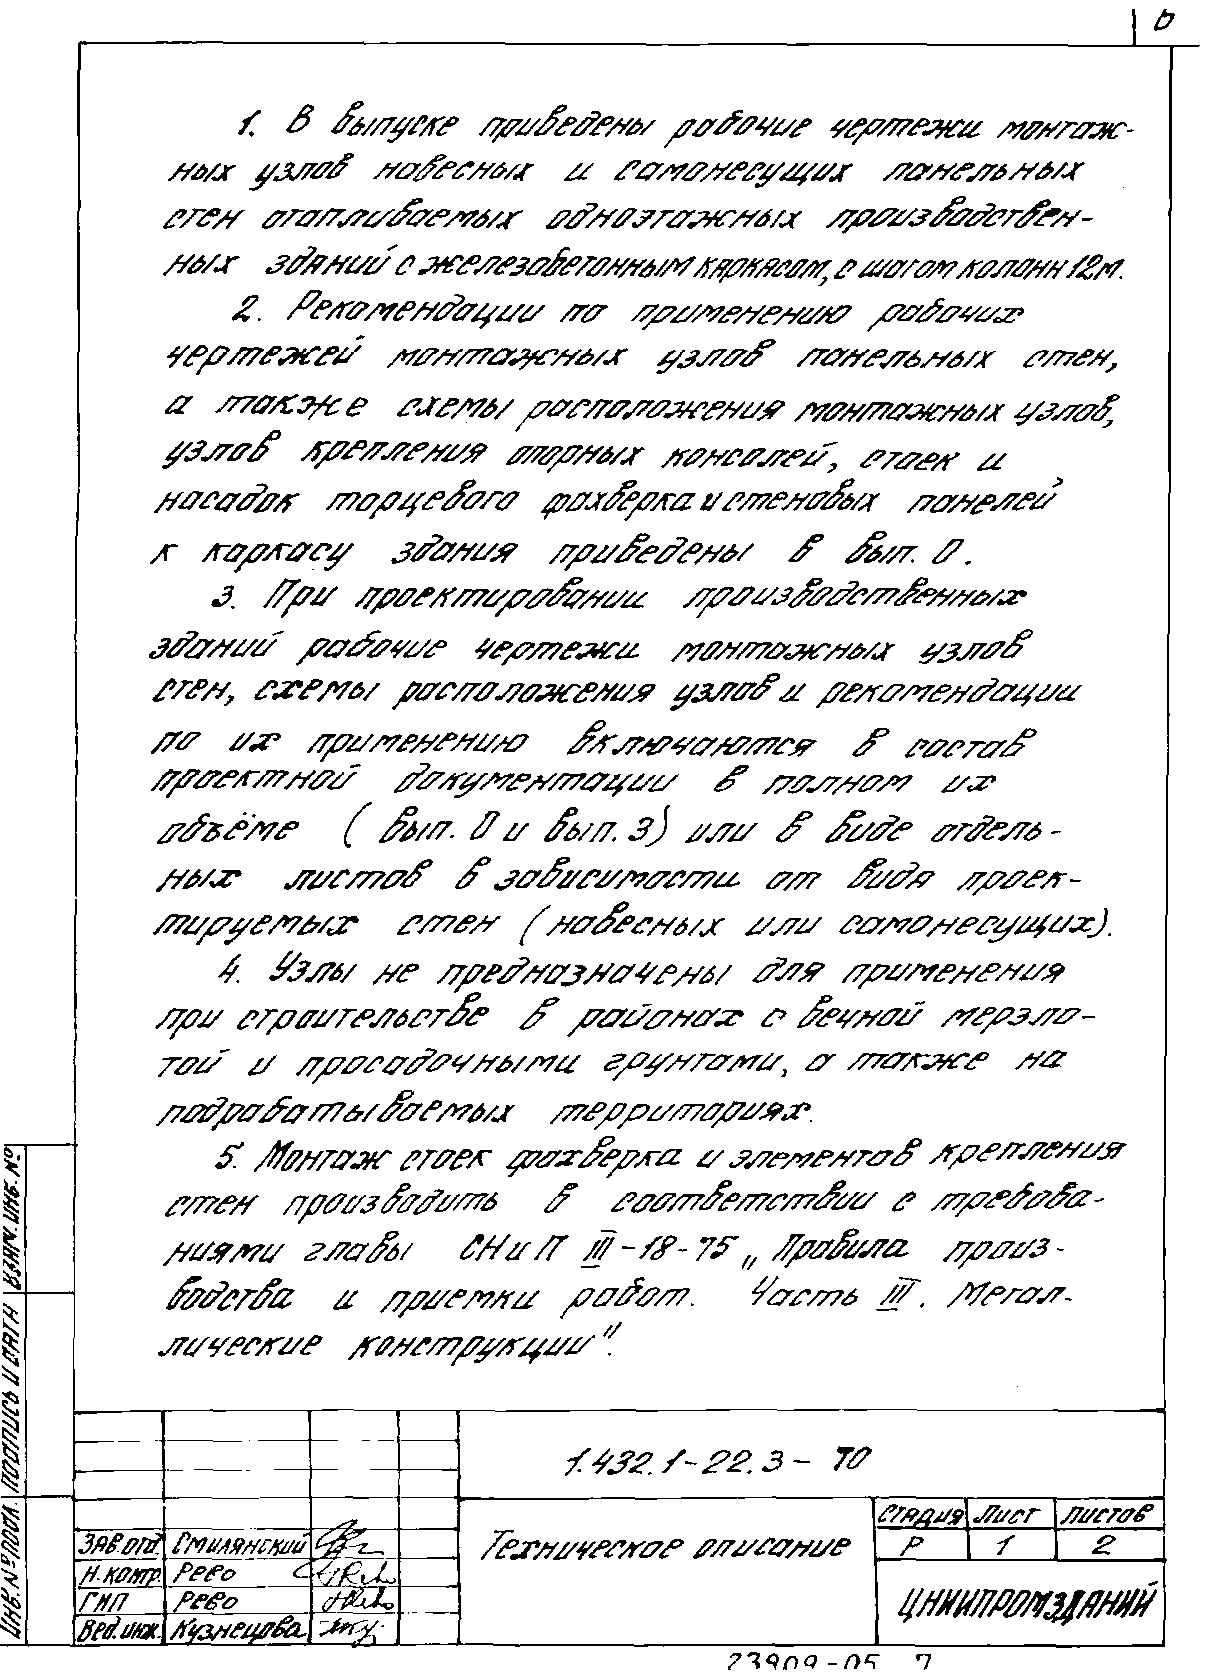 1. В выпуске приведены рабочие чертежи монтаж-
ных узлов навесных и самонесущих панельных
стен отапливаемых одноэтажных производствен-
ных зданий с железобетонным каркасом, с шагом колонн 12 м.
2. Рекомендации по применению рабочих
чертежей монтажных узлов панельных стен,
а также схемы расположения монтажных узлов,
узлов крепления опорных консолей, стоек и
насадок торцевого фахверка и стеновых панелей
к каркасу здания приведены в вып. 0.
3. При проектировании производственных
зданий рабочие чертежи монтажных узлов
стен, схемы расположения узлов и рекомендации
по их применению включаются в состав
проектной документации в полном их
объёме (вып. 0 и вып. 3) или в виде отдель-
ных листов в зависимости от вида проек-
тируемых стен (навесных или самонесущих).
4. Узлы не предназначены для применения
при строительстве в районах с вечной мерзло-
той и просадочными грунтами, а также на
подрабатываемых территориях.
5. Монтаж стоек фахверка и элементов крепления
стен производить в соответствии с требова-
ниями главы СНиП III-18-75 „Правила произ-
водства и приемки работ. Часть III. Метал-
лические конструкции".
1.432.1-22.3-ТО
Техническое описание
Стадия Лист Листов
Р 1 2
ЦНИИПРОМЗДАНИЙ
Зав. отд. Смилянский
Н. контр. Рево
ГИП Рево
Вед. инж. Кузнецова
Инв. № подл. Подпись и дата Взам. инв. №
23909-05 7